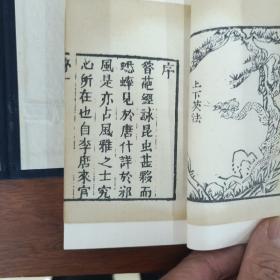 序
嘗葩經詠昆虫甚夥而
蟋蟀見於唐什詳於邠
風是亦占風雅之士究
心所在也自李唐來宮
上下英法